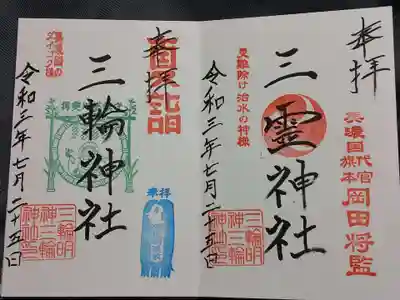 奉拝
三霊神社
災難除け 治水の神様
令和三年七月二十五日
美濃国代官
旗本
岡田将監
三輪明
神三輪
神社印
奉拝
三輪神社
令和三年七月二十五日
奉拝
三輪明
神三輪
神社印